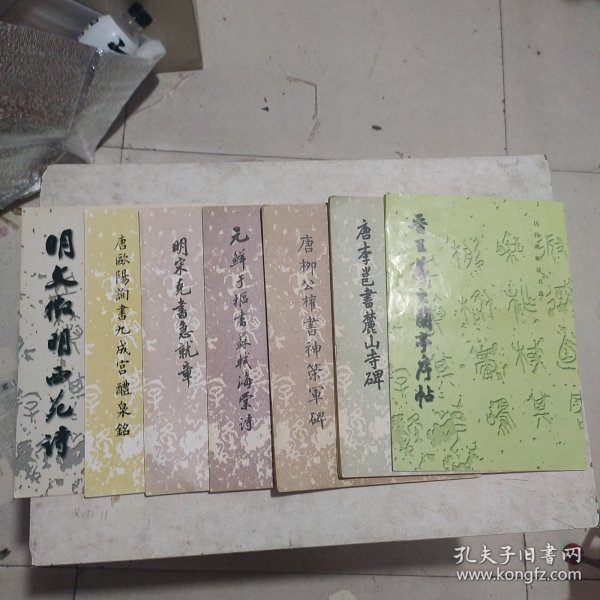 明文徵明西苑诗
唐歐陽詢書九成宫醴泉銘
明宋克書急就章
元鲜于樞書蘇軾海棠诗
唐柳公權書神策軍碑
唐李邕書麓山寺碑
晋王羲之蘭亭序帖
孔夫子旧书网
www.kongfz.com